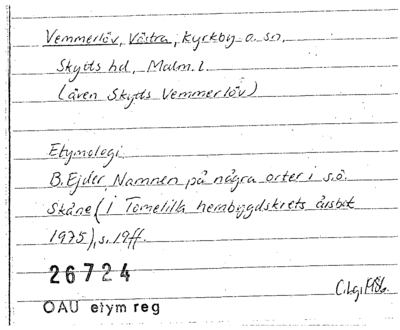 Vemmerlöv, Västra, Kyrkby o. sn.
Skytts hd, Malm. l.
(även Skytts Vemmerlöv)
Etymologi
B. Ejder, Namnen på några orter i s.ö.
Skåne (i Tomelilla hembygdskrets årsbok
1975), s. 19ff.
26724
OAU etym reg